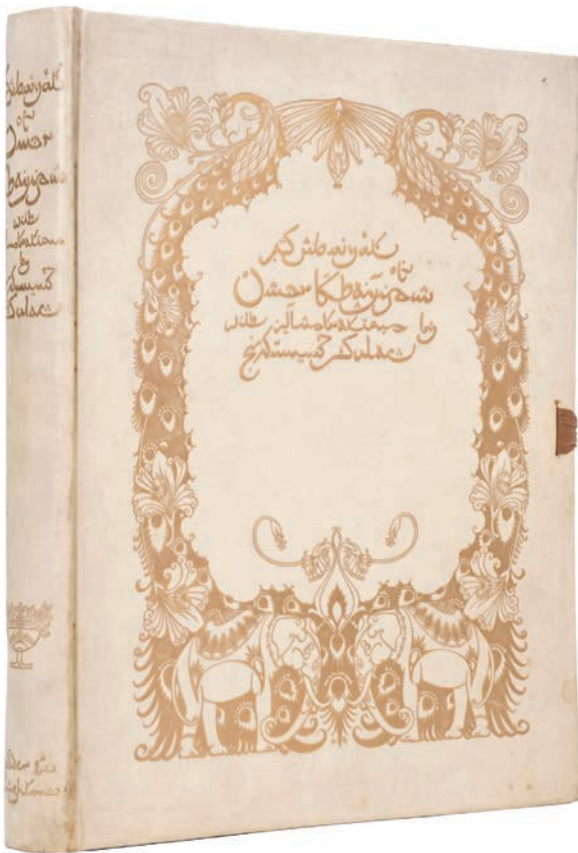 Rubáiyát
of
Omar
Khayyám
with
illustrations
by
Edmund
Dulac
Hodder &
Stoughton
Rubáiyát
of
Omar Khayyám
with illustrations by
Edmund Dulac